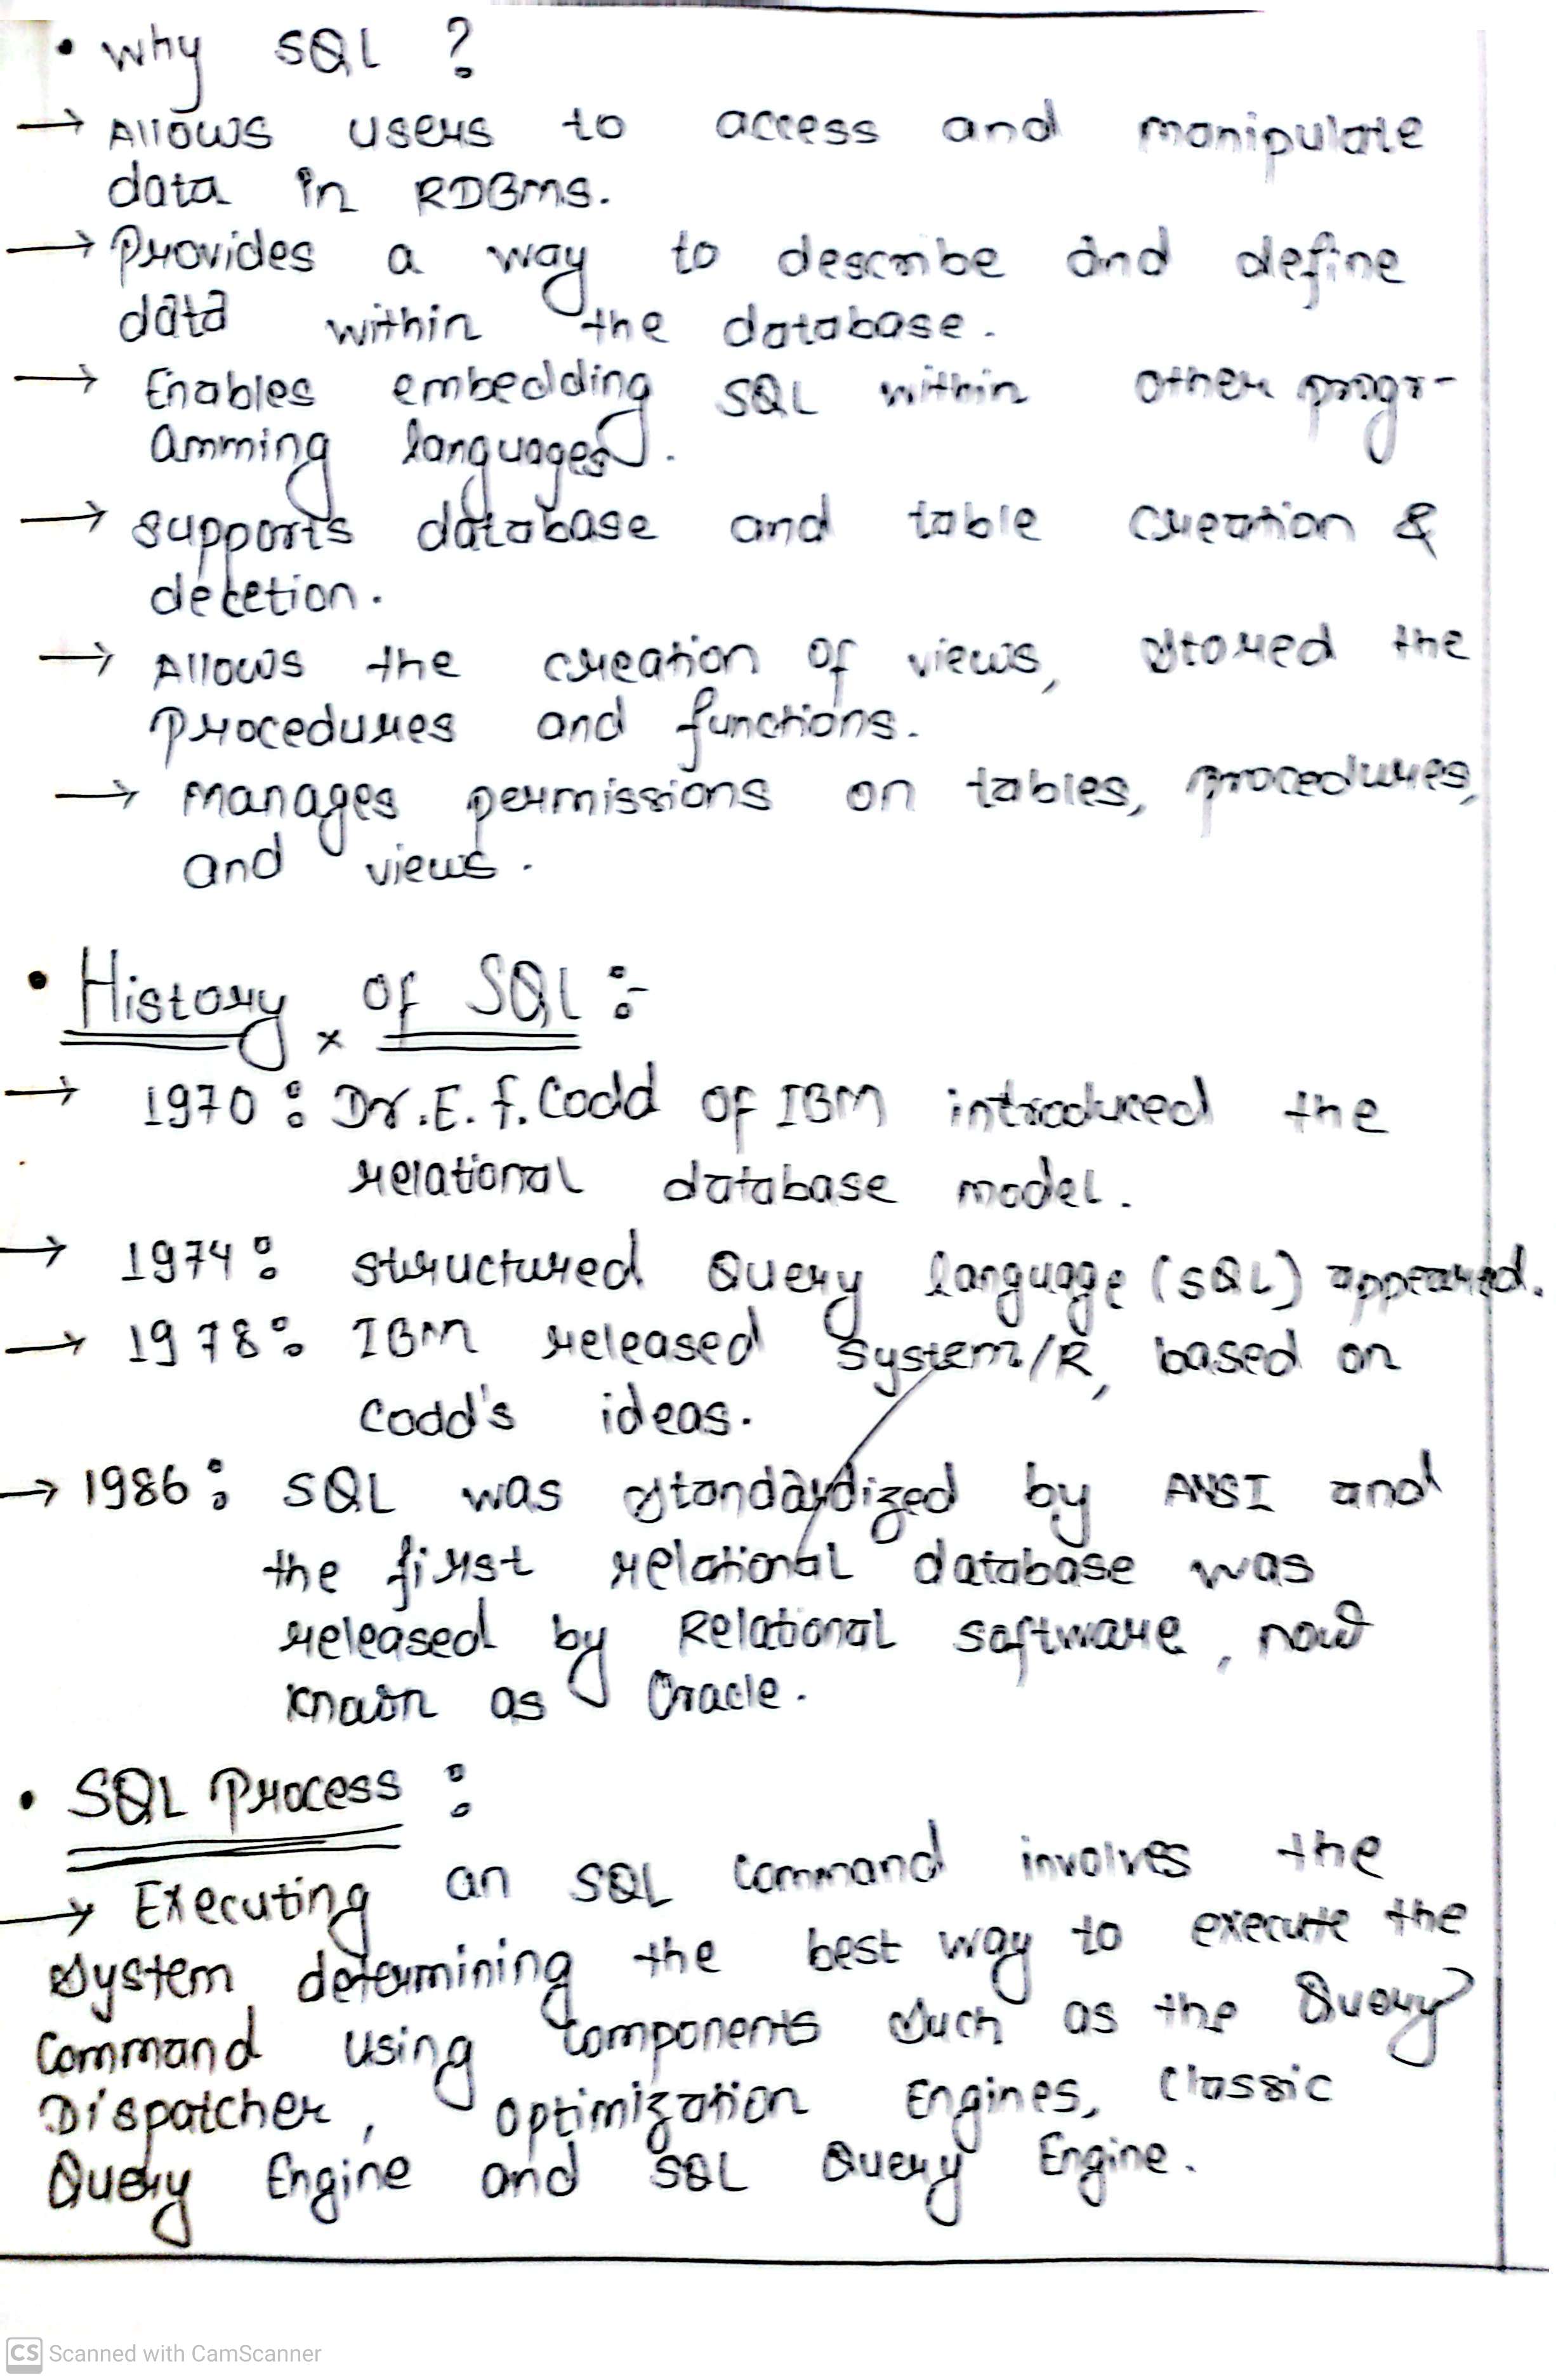 • Why SQL ?
→ Allows users to access and manipulate
data in RDBMS.
→ Provides a way to describe and define
data within the database.
→ Enables embedding SQL within other progr-
amming languages.
→ supports database and table creation &
deletion.
→ Allows the creation of views, stored the
procedures and functions.
→ Manages permissions on tables, procedures,
and views.
• History of SQL :-
→ 1970 : Dr. E. F. Codd of IBM introduced the
relational database model.
→ 1974 : structured Query language (SQL) appeared.
→ 1978 : IBM released System/R, based on
Codd's ideas.
→ 1986 : SQL was standardized by ANSI and
the first relational database was
released by Relational software, now
known as Oracle.
• SQL Process :
→ Executing an SQL command involves the
system determining the best way to execute the
Command using components such as the Query
Dispatcher, Optimization Engines, Classic
Query Engine and SQL Query Engine.
CS Scanned with CamScanner